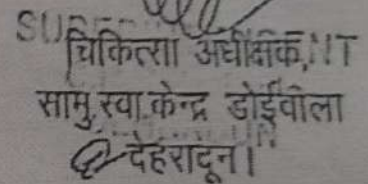 चिकित्सा अधीक्षक
सामु.स्वा.केन्द्र डोईवाला
देहरादून।